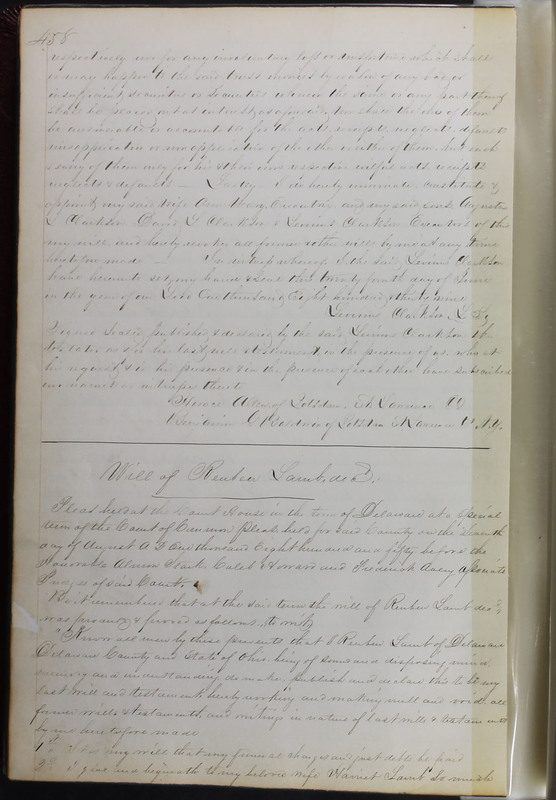 458
respectively nor for any involuntary loss or misfortune which shall
or may happen to the said trust monies by reason of any bad or
insufficient securities or securities wherein the same or any part thereof
shall be placed out at interest as aforesaid, nor shall the one of them
be answerable or accountable for the acts, receipts, neglects, defaults
misapplication or non application of the other or others of them, but each
& every of them only for his & their own respective wilful acts, receipts
neglects & defaults — Lastly I do hereby nominate, constitute &
appoint my said wife Ann Mary, Executrix and my said sons Augustus
L Clarkson David L Clarkson & Levinus Clarkson Executors of this
my will and hereby revoking all former & other wills by me at any time
heretofore made — In witness whereof I the said Levinus Clarkson
have hereunto set my hand & seal this twenty fourth day of June
in the year of our Lord One thousand Eight hundred & thirty nine
Levinus Clarkson L S,
Signed sealed published & declared by the said Levinus Clarkson the
testator as & for his last will & testament in the presence of us, who at
his request, & in his presence & in the presence of each other have subscribed
our names as witnesses thereto
Horace Allen of Potsdam, St Lawrence Co
Benjamin G Baldwin of Potsdam St Lawrence Co N.Y.
Will of Reuben Lamb, decd.
Pleas held at the Court House in the town of Delaware at a special
term of the Court of Common Pleas held for said County on the Seventh
day of August A D One thousand Eight hundred and fifty before the
Honorable Almon Stark Caleb Howard and Frederick Avery Associate
Judges of said Court
Be it remembered that at the said term the will of Reuben Lamb decd
was presented & proved as follows, to wit;
"Know all men by these presents that I Reuben Lamb of Delaware
Delaware County and State of Ohio, being of sound and disposing mind
memory and understanding do make, publish and declare this to be my
last will and testament, hereby revoking and making null and void all
former wills & testaments, and writings in nature of last wills & testaments
by me heretofore made
1st I will that my funeral charges and just debts be paid
2d I give and bequeath to my beloved wife Harriet Lamb so much